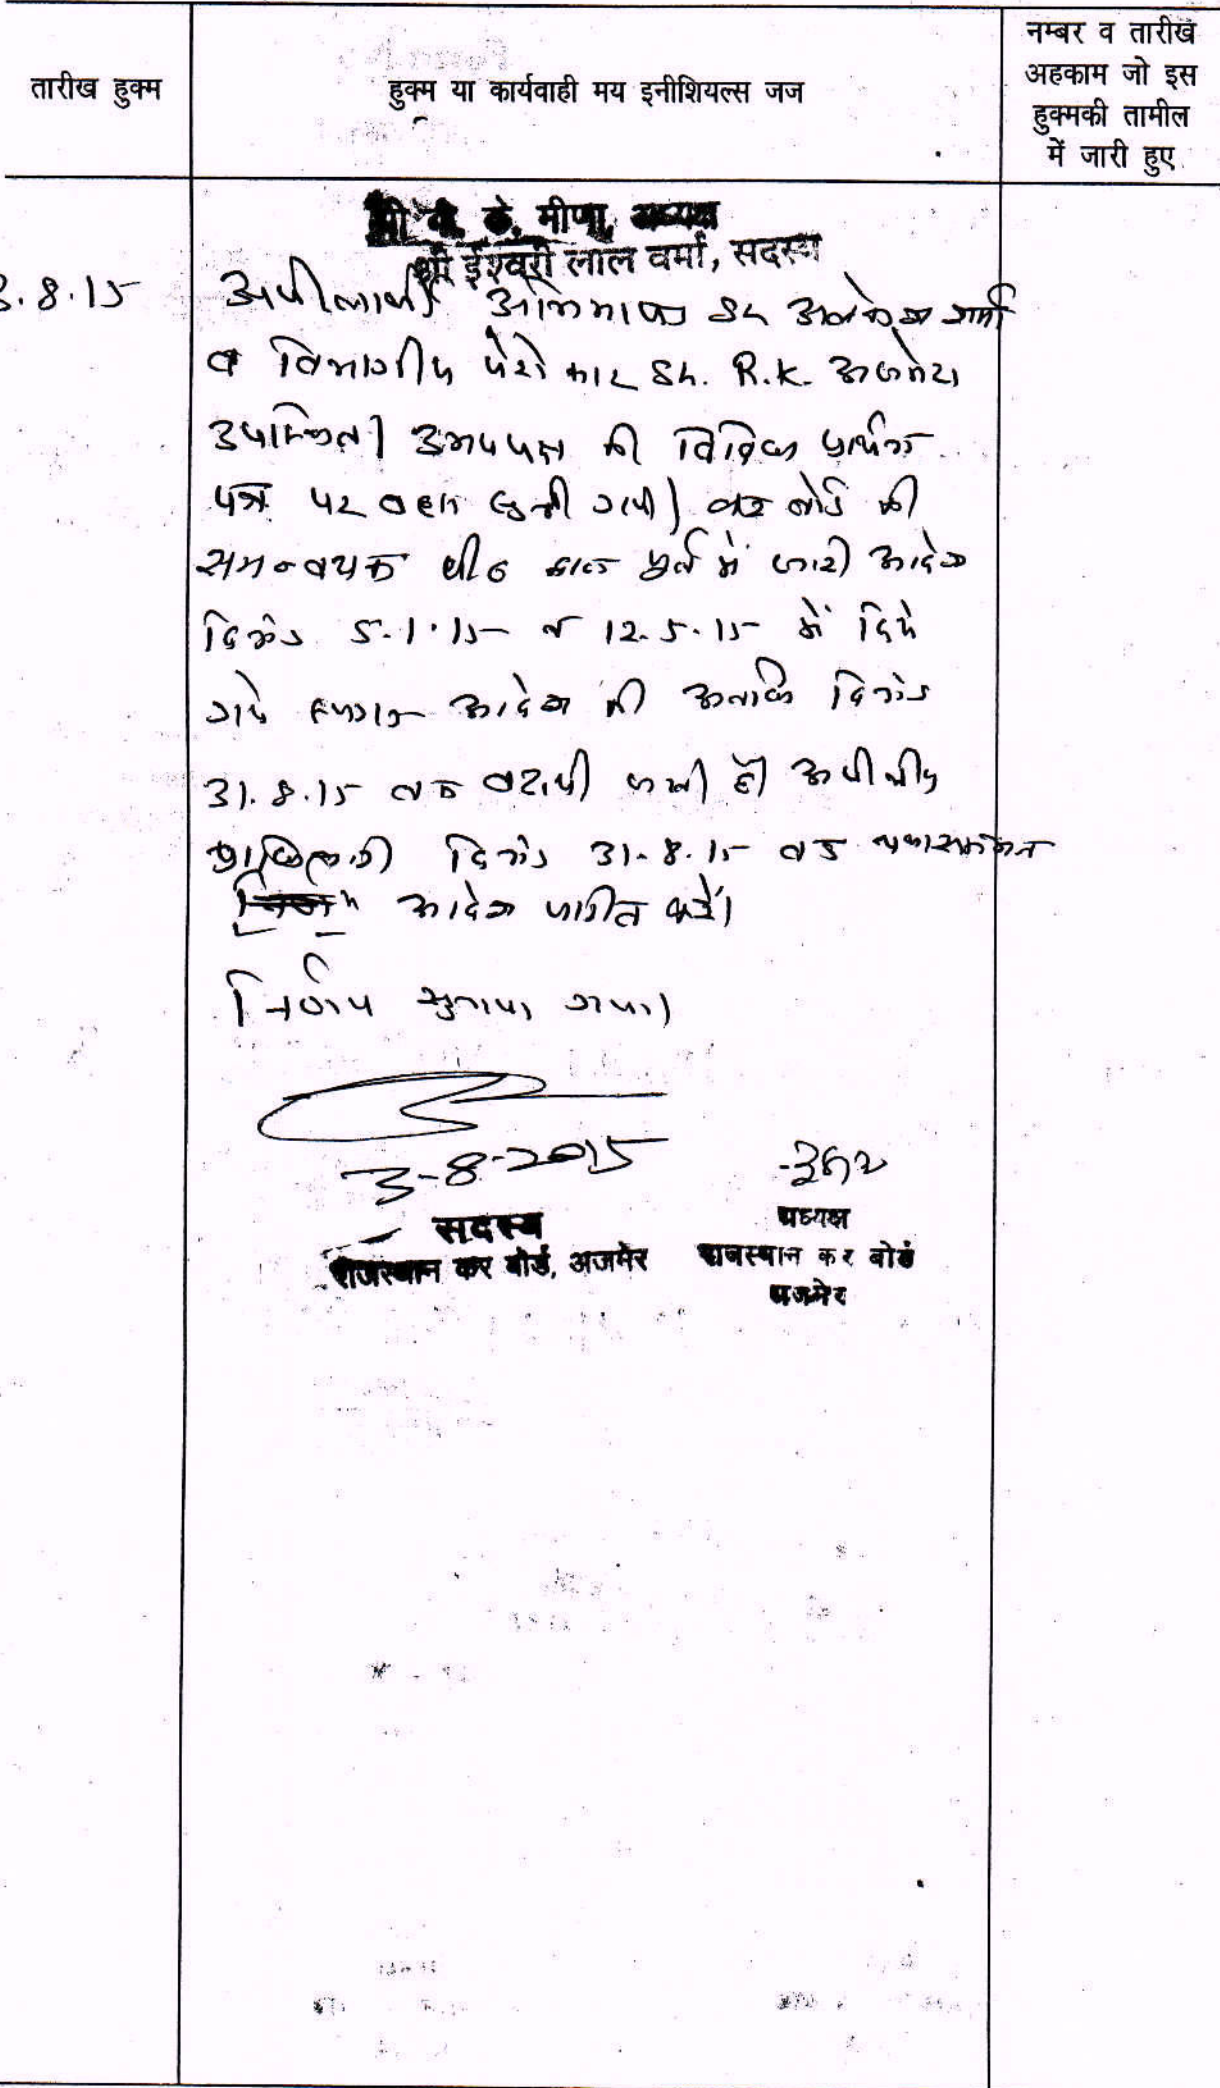 तारीख हुक्म
हुक्म या कार्यवाही मय इनीशियल्स जज
नम्बर व तारीख
अहकाम जो इस
हुक्मकी तामील
में जारी हुए
के. मीणा, अध्यक्ष
श्री ईश्वरी लाल वर्मा, सदस्य
3.8.15
अपीलार्थी अभिभाषक Sh अलकेश शर्मा
व विभागीय पेरोकार Sh. R.K. अजमेरा
उपस्थित। उभयपक्ष की विविध प्रार्थना
पत्र पर बहस सुनी गयी। कर बोर्ड की
समन्वयक पीठ द्वारा पूर्व में जारी आदेश
दिनांक 5.1.15 व 12.5.15 में दिये
गये स्थगन आदेश की अवधि दिनांक
31.8.15 तक बढायी जाती है। अपीलीय
प्राधिकारी दिनांक 31.8.15 तक
आदेश पारित करें।
निर्णय सुनाया गया।
3-8-2015
सदस्य
राजस्थान कर बोर्ड, अजमेर
अध्यक्ष
राजस्थान कर बोर्ड
अजमेर